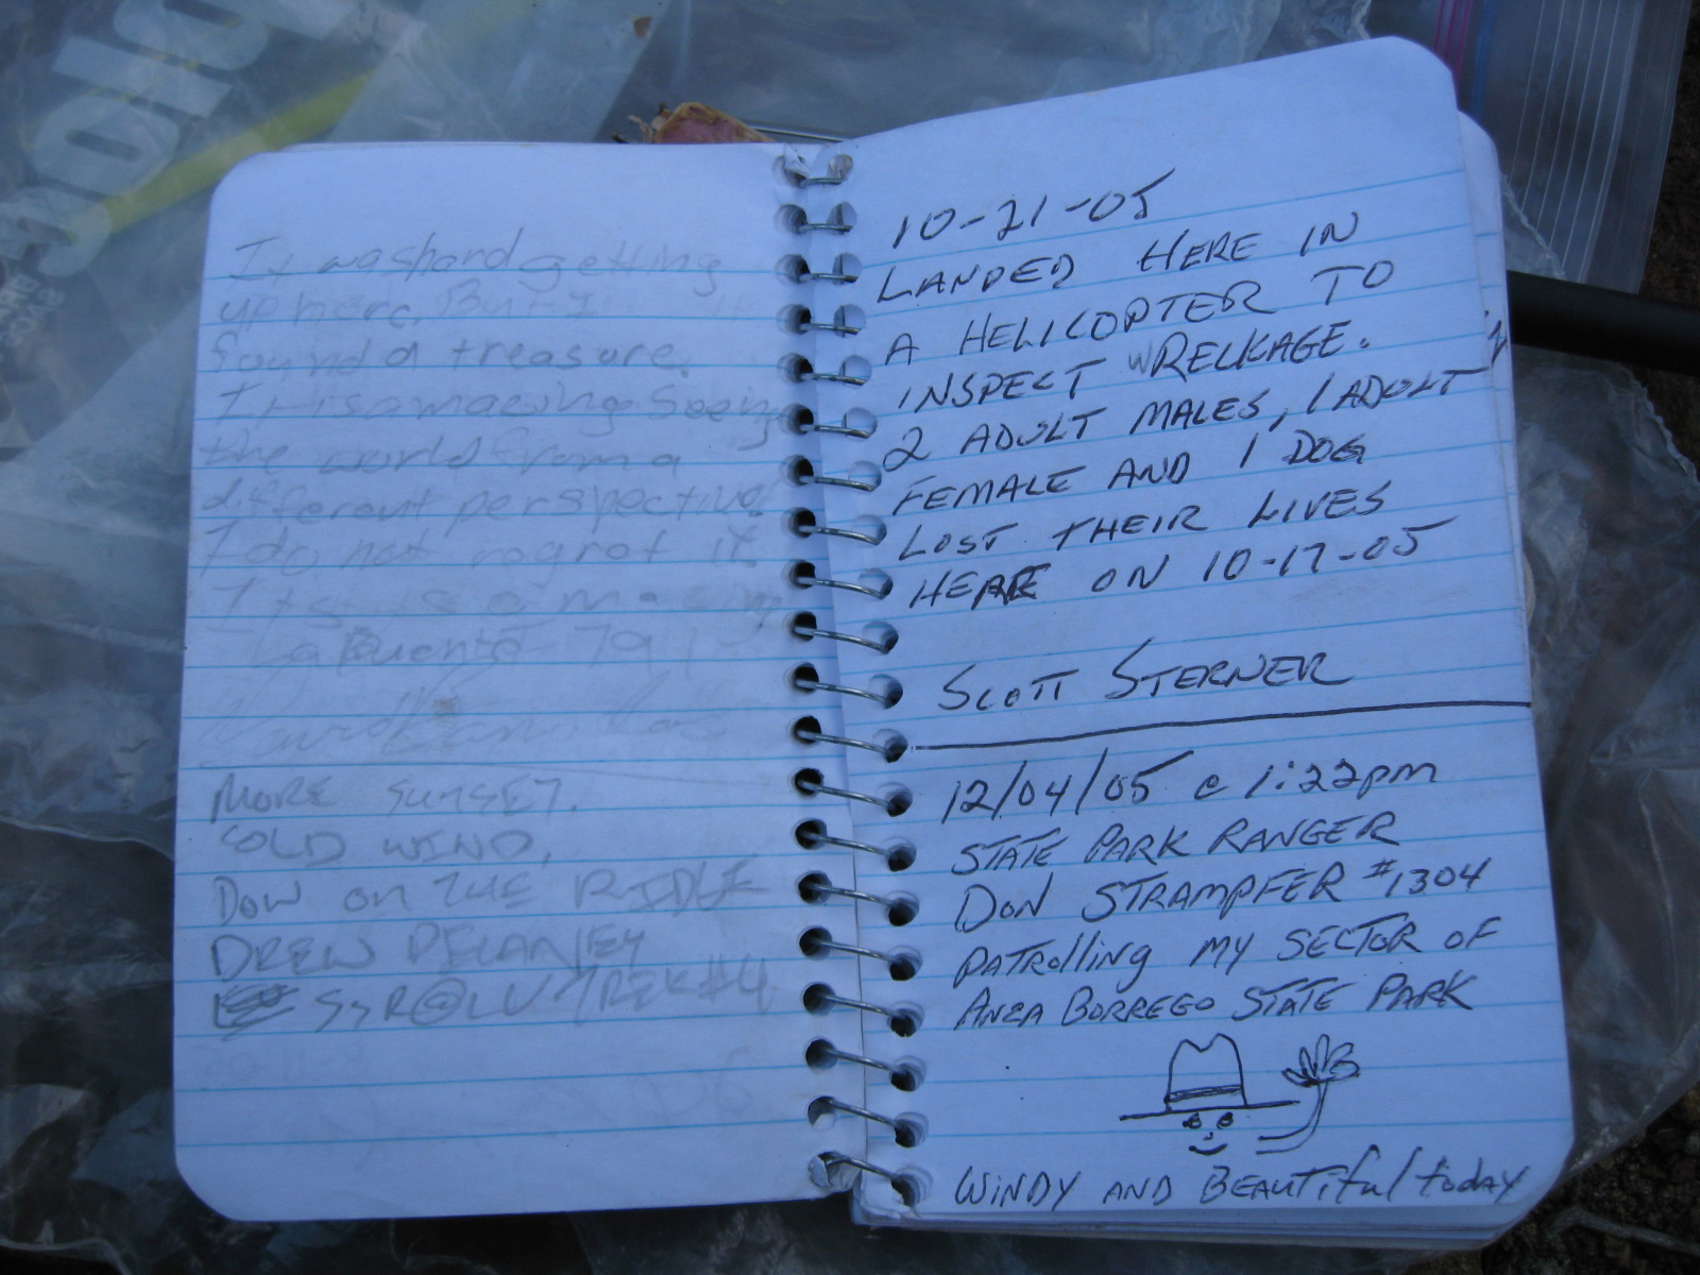 It was hard getting
up here. But I
found a treasure.
It is amaezing Seeing
the world from a
different perspective.
I do not regret it.
It is a
La Puente 791
MORE SUNSET.
COLD WIND,
DOW ON THE RIDLE
DREW DELANEY
TREK #4
10-21-05
LANDED HERE IN
A HELICOPTER TO
INSPECT WRECKAGE.
2 ADULT MALES, 1 ADULT
FEMALE AND 1 DOG
LOST THEIR LIVES
HERE ON 10-17-05
SCOTT STERNER
12/04/05 @ 1:22pm
STATE PARK RANGER
DON STRAMPFER #1304
PATROlling MY SECTOR OF
ANZA BORREGO STATE PARK
WINDY AND BEAUTiful today